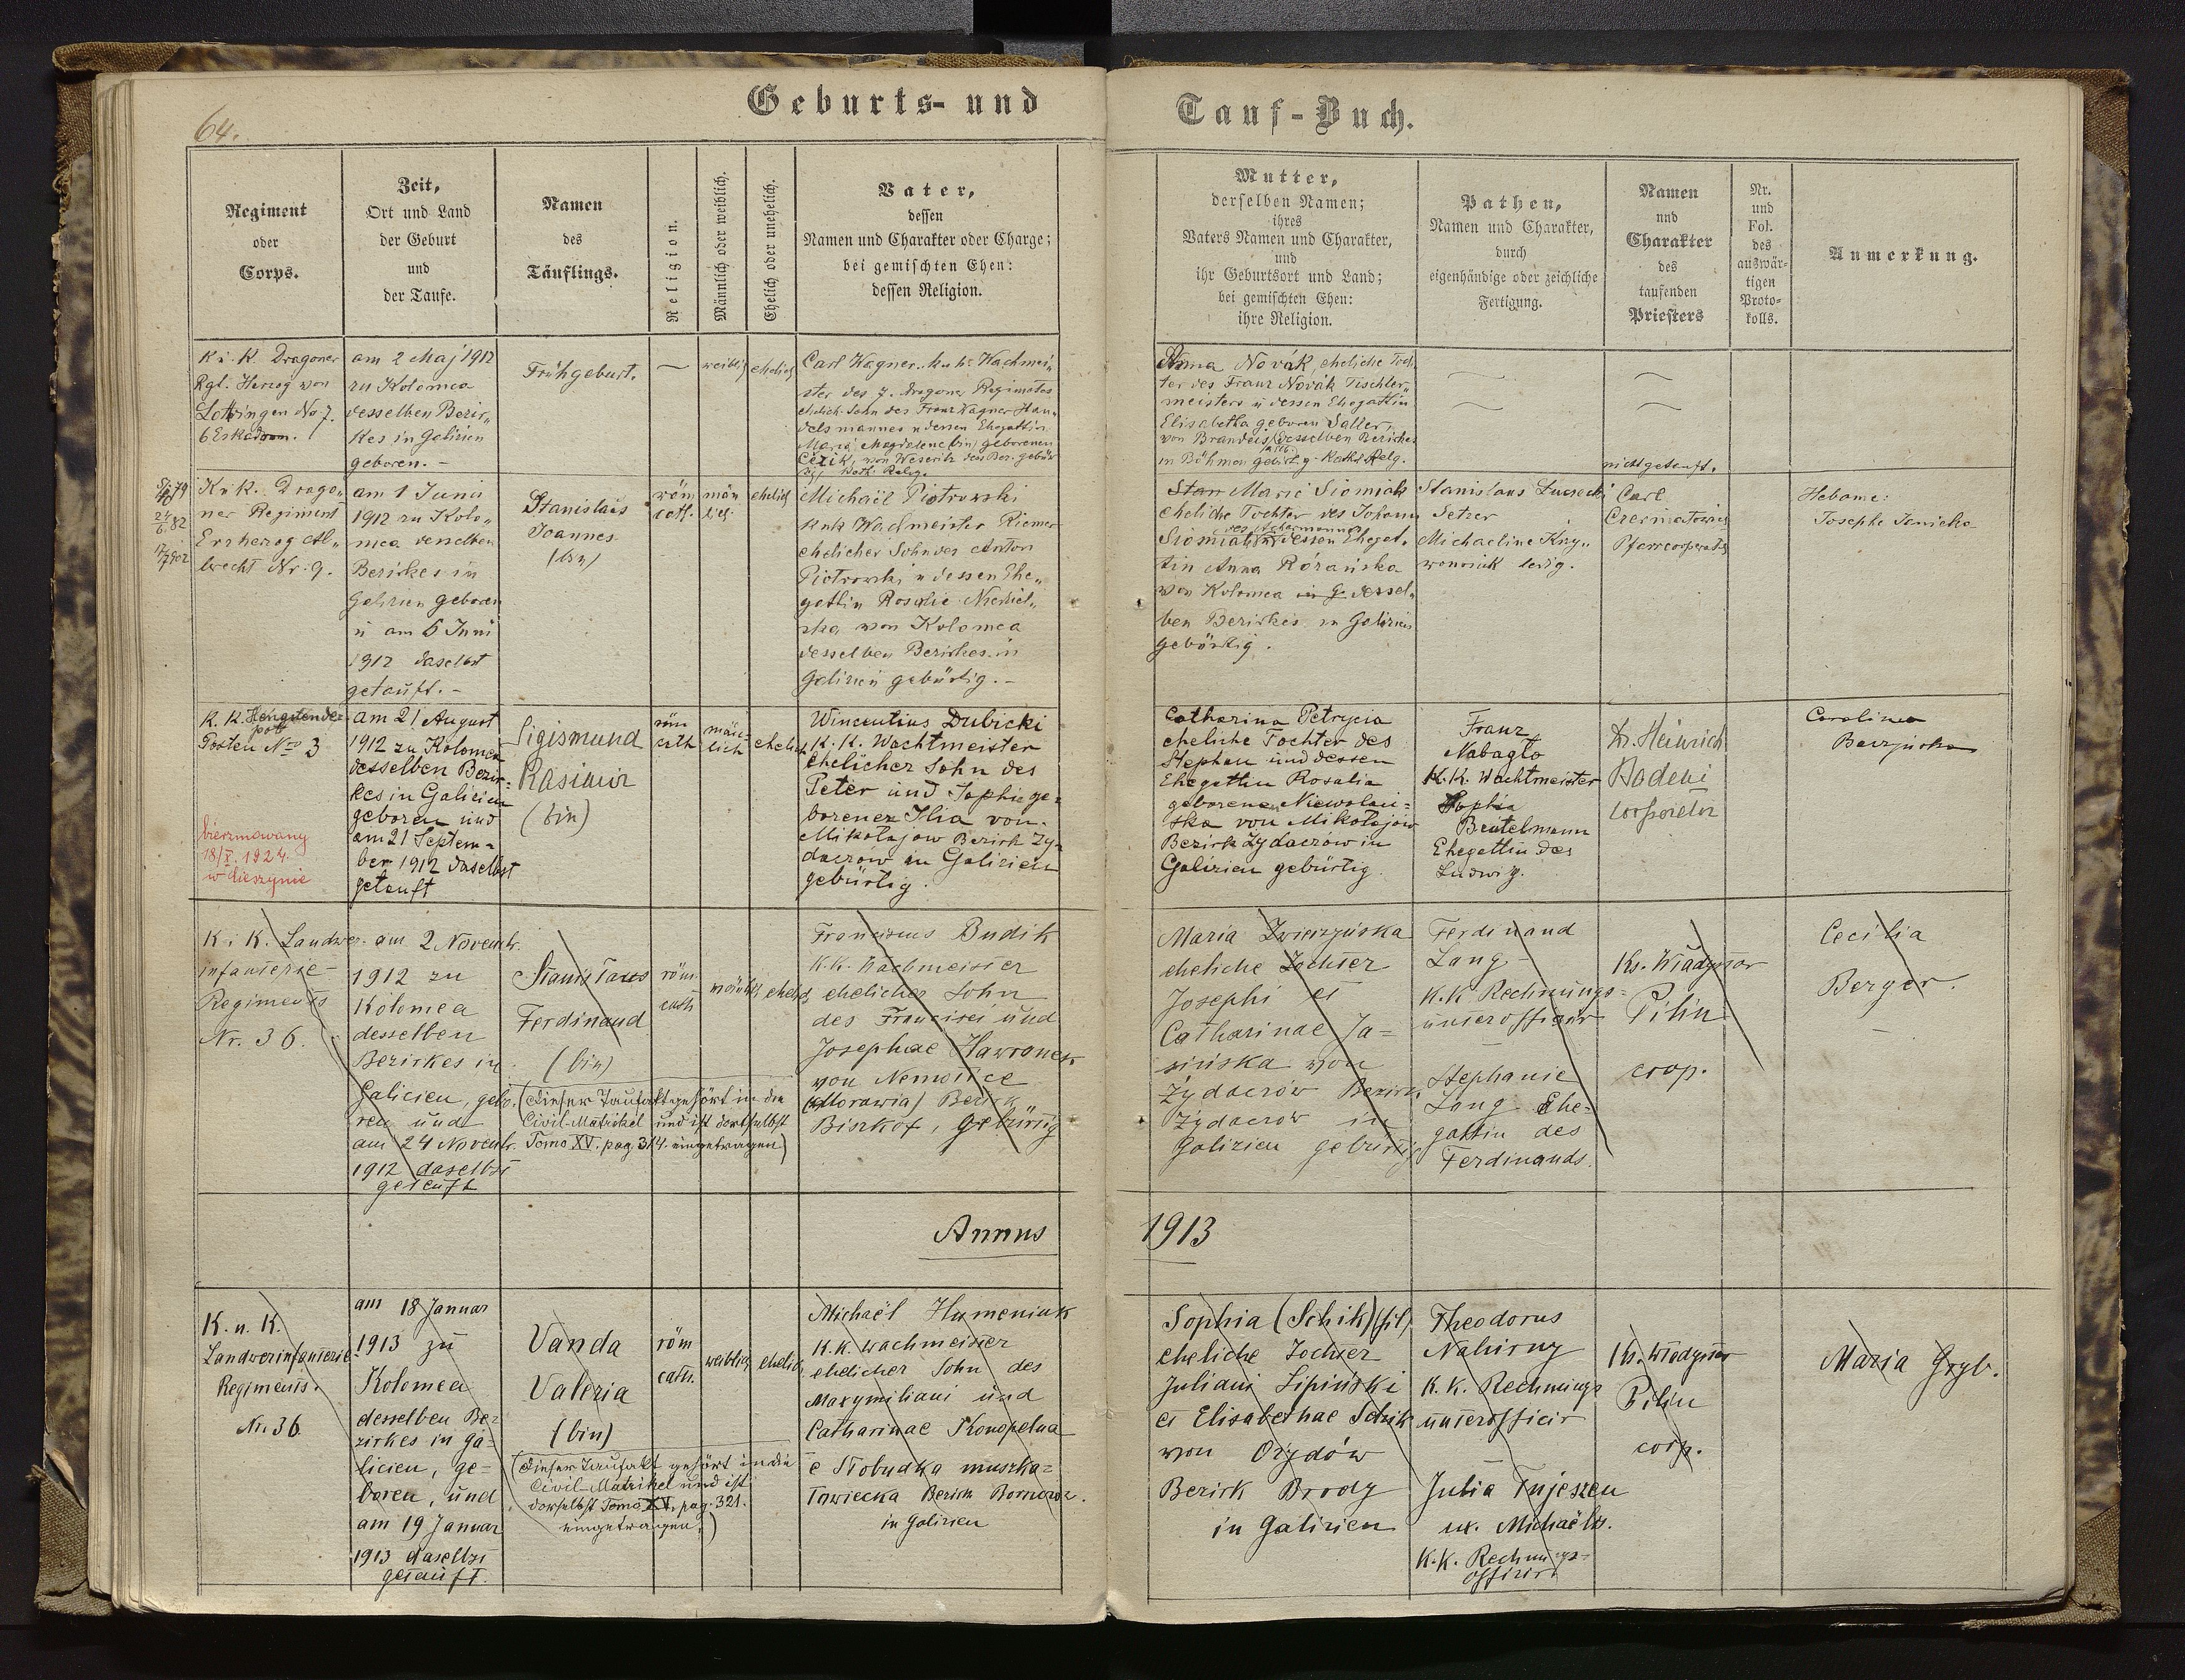 64.
Geburts- und
Tauf-Buch.
Regiment
oder
Corps.
Zeit,
Ort und Land
der Geburt
und
der Taufe.
Namen
des
Täuflings.
Religion.
Männlich oder weiblich.
Ehelich oder unehelich.
Vater,
dessen
Namen und Charakter oder Charge;
bei gemischten Ehen:
dessen Religion.
Mutter,
derselben Namen;
ihres
Vaters Namen und Charakter,
und
ihr Geburtsort und Land;
bei gemischten Ehen:
ihre Religion.
Pathen,
Namen und Charakter,
durch
eigenhändige oder zeichliche
Fertigung.
Namen
und
Charakter
des
taufenden
Priesters
Nr.
und
Fol.
des
auswär-
tigen
Proto-
kolls.
Anmerkung.
K. i. K. Dragoner
Rgt. Herzog von
Lothringen No 7.
6 Eskadron.
am 2 Maj 1912
zu Kolomea
desselben Bezir„
kes in Galizien
geboren. –
Frühgeburt.
weiblich
ehelich
Carl Wagner k. u. k. Wachmei„
ster des 7. Dragoner Regimentes
ehelich. Sohn des Franz Wagner Han„
delsmannes u dessen Ehegattin
geborenen
Anna Novák, eheliche Toch„
ter des Franz Novák Tischler„
meisters u dessen Ehegattin
Elisabetha geboren Saller,
von Brandeis desselben Bezirkes
in Böhmen
nicht getauft.
K. i. K. Drago„
ner Regiment
Erzherzog Al„
brecht Nr. 9.
am 1 Junii
1912 zu Kolo„
mea desselben
Bezirkes in
Galizien geboren
u am 6 Juni
1912 daselbst
getauft. –
Stanislaus
Joannes
(bin)
röm
cath.
män
lich
ehelich
Michaël Piotrowski
k.u.k Wachmeister Riemer
ehelicher Sohn des Anton
Piotrowski u dessen Ehe„
gattin Rosalie Niedziel„
ska von Kolomea
desselben Bezirkes in
Galizien gebürtig. –
Stan Marie Siomiak
eheliche Tochter des Johann
Siomiak u dessen Ehegat„
tin Anna Różańska
von Kolomea in G. dessel„
ben Bezirkes in Galizien
gebürtig.
Setzer
ledig.
Carl
Pfarrcooperator
Hebame:
K. K. Hengstende-
pot
Posten No 3
bierzmowany
18/X. 1924.
w Cieszynie
am 21 August
1912 zu Kolomea
desselben Bezir-
kes in Galicien
geboren und
am 21 Septem-
ber 1912 daselbst
getauft
Sigismund
Kasimir
(bin)
röm
cath
män-
lich
ehelich
Wincentius Dubicki
K. K. Wachtmeister
ehelicher Sohn des
Peter und Sophie ge-
borener Ilia von
Mikołajow Bezirk Zy-
daczow in Galizien
gebürtig.
Catharina Petrycia
eheliche Tochter des
Stephan und dessen
Ehegattin Rosalia
geborene
ska von Mikołajow
Bezirk Zydaczów in
Galizien gebürtig.
Franz
Nabagło
K. K. Wachtmeister
Sophia
Beutelmann
Ehegattin des
Ludwig.
Dr. Heinrich
Badeni
Carolina
K. i K. Landwer-
infanterie-
Regiments
Nr. 36.
am 2 Novembr.
1912 zu
Kolomea
desselben
Bezirkes in
Galicien, gebo-
ren und
am 24 Novembr.
1912 daselbst
getauft
Stanislaus
Ferdinand
(bin)
(Dieser Taufakt gehört in die
Civil-Matrikel und ist dortselbst
Tomo XV. pag. 314. eingetragen)
röm.
cath
männlich
ehelich
Franciscus Budik
K.K. Wachmeister
ehelicher Sohn
des Francisci und
Josephae Hawranek
von Nemotice
(Morawia) Bezirk
gebürtig
Maria Zwierzyńska
eheliche Tochter
Josephi et
Catharinae Ja-
sińska von
Żydaczów Bezirk
Żydaczów in
Galizien gebürtig
Ferdinand
Lang –
K.K Rechnungs-
unteroffizier
Stephanie
Lang Ehe-
gattin des
Ferdinands.
Ks. Władysław
Pilin
coop.
Cecilia
Berger.
Annus
1913
K. u. K.
Landwerinfanterie
Regiments.
Nr. 36
am 18 Januar
1913 zu
Kolomea
desselben Be-
zirkes in Ga-
licien, ge-
boren, und
am 19 Januar
1913 daselbst
getauft.
Vanda
Valeria
(bin)
(Dieser Taufakt gehört in die
Civil-Matrikel und ist
dortselbst Tomo XV, pag. 321.
eingetragen.)
röm
cath.
weiblich
ehelich
Michaël Humeniuk
K.K. Wachmeister
ehelicher Sohn des
Maxymiliani und
Catharinae Konopelna
in Galizien
Sophia (Schik)
eheliche Tochter
Juliani Lipiński
et Elisabethae Schik
von Ożydów
Bezirk Brody
in Galizien
Theodorus
Nahirny
K. K. Rechnungs
unterofficir
Julia
ux. Michaëlis.
K.K. Rechnungs-
offizir
Ks. Władysław
Pilin
coop.
Maria Gryb.